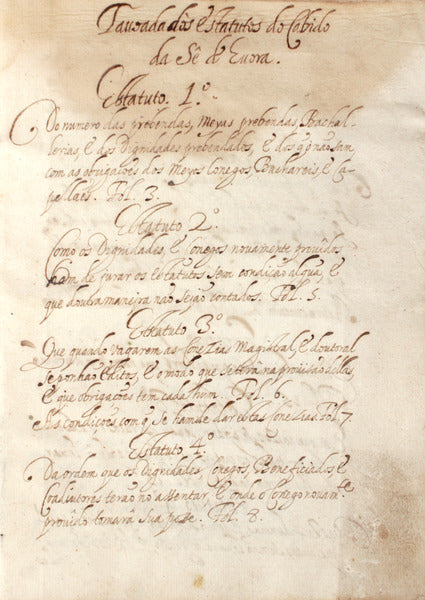 Tavoada dos estatutos do Cabido
da Sê d Euora.
Estatuto. 1.º
Do numero das prebendas, Meyas prebendas, Bachal-
lerias, E dos Dignidades prebendados, E dos q̃ não sam
com as obrigações dos Meyos Conegos, Bachareis, E Ca-
pellaẽs. Fol. 3.
Estatuto 2.º
Como os Dignidades, E Conegos novamente providos
ham de jurar os estatutos sem condição algũa, E
que doutra maneira não sejão contados. Fol. 5.
Estatuto 3.º
Que quando vagarem as Conezias Magistral, E doutoral
se ponhão Editos, E o modo que se terâ na provisão dellas
E que obrigações tem cada hum. Fol. 6.
As condições com q̃ se hamde dar estas Conezias Fol. 7.
Estatuto 4.º
Da ordem que os Dignidades, Conegos, Beneficiados, E
Coadiutores terão no assentar, E onde o Conego novam.te
provido tomarâ sua posse. Fol. 8.